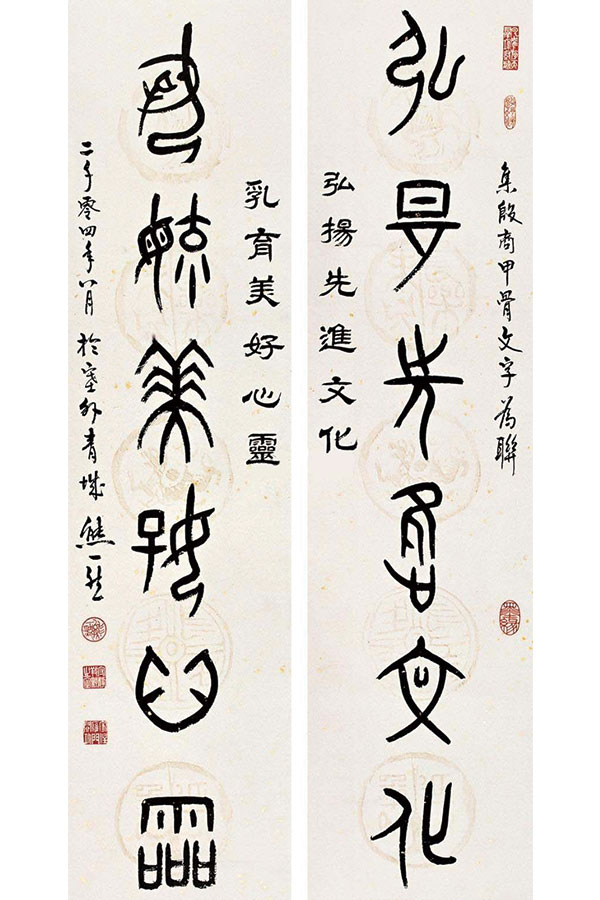 集殷商甲骨文字為聯
弘揚先進文化
弘揚先進文化
乳育美好心靈
乳育美好心靈
二千零四年八月於塞外青城熊一